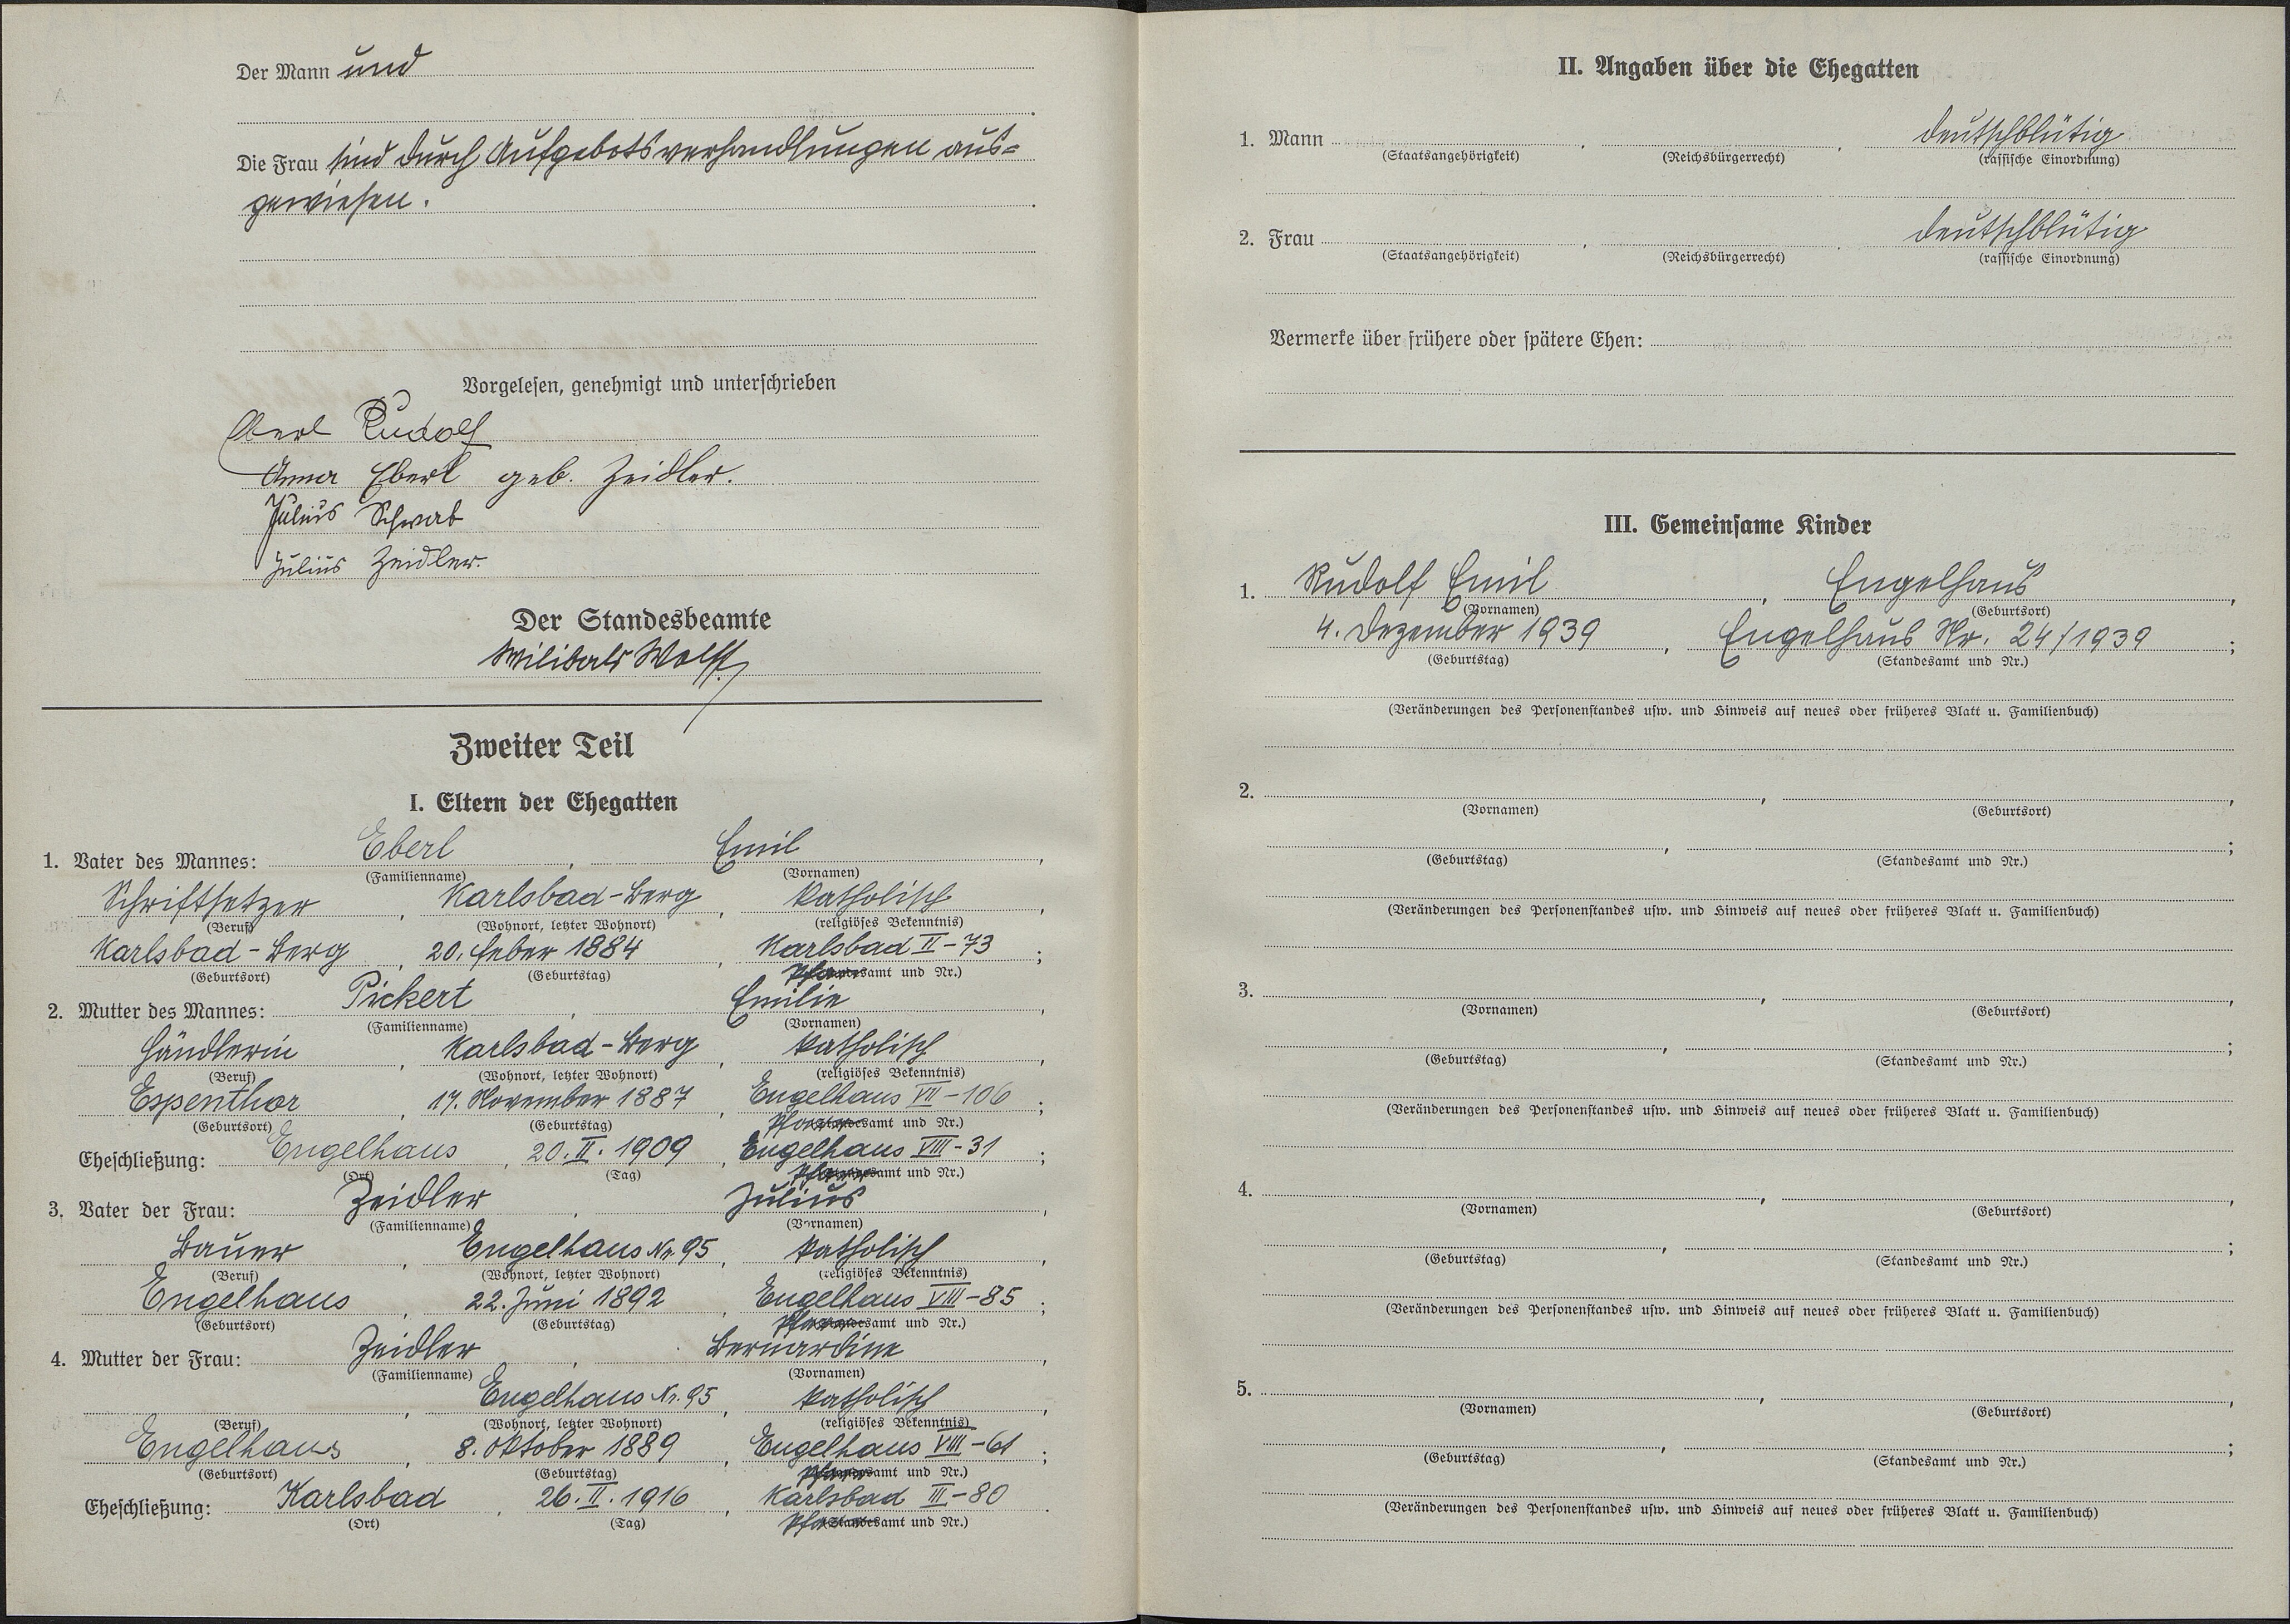 Der Mann und
Die Frau sind durch Aufgebotsverhandlungen aus=
gewiesen.
Vorgelesen, genehmigt und unterschrieben
Eberl Rudolf
Anna Eberl geb. Zeidler.
Julius Schwab
Julius Zeidler.
Der Standesbeamte
Wilibald Wolf
Zweiter Teil
I. Eltern der Ehegatten
1. Vater des Mannes: Eberl, Emil,
(Familienname) (Vornamen)
Schriftsetzer, Karlsbad-Berg, katholisch,
(Beruf) (Wohnort, letzter Wohnort) (religiöses Bekenntnis)
Karlsbad-Berg, 20. Feber 1884, Karlsbad II-73;
(Geburtsort) (Geburtstag) Pfarramt und Nr.)
2. Mutter des Mannes: Pickert, Emilie,
(Familienname) (Vornamen)
Händlerin, Karlsbad-Berg, katholisch,
(Beruf) (Wohnort, letzter Wohnort) (religiöses Bekenntnis)
Espenthor, 17. November 1887, Engelhaus VII-106;
(Geburtsort) (Geburtstag) Pfarramt und Nr.)
Eheschließung: Engelhaus, 20. II. 1909, Engelhaus VIII-31;
(Ort) (Tag) Pfarramt und Nr.)
3. Vater der Frau: Zeidler, Julius,
(Familienname) (Vornamen)
Bauer, Engelhaus Nr. 95, katholisch,
(Beruf) (Wohnort, letzter Wohnort) (religiöses Bekenntnis)
Engelhaus, 22. Juni 1892, Engelhaus VIII-85;
(Geburtsort) (Geburtstag) Pfarramt und Nr.)
4. Mutter der Frau: Zeidler, Bernardine,
(Familienname) (Vornamen)
, Engelhaus Nr. 95, katholisch,
(Beruf) (Wohnort, letzter Wohnort) (religiöses Bekenntnis)
Engelhaus, 8. Oktober 1889, Engelhaus VIII-61;
(Geburtsort) (Geburtstag) Pfarramt und Nr.)
Eheschließung: Karlsbad, 26. II. 1916, Karlsbad III-80.
(Ort) (Tag) Pfarramt und Nr.)
II. Angaben über die Ehegatten
1. Mann , , deutschblütig
(Staatsangehörigkeit) (Reichsbürgerrecht) (rassische Einordnung)
2. Frau , , deutschblütig
(Staatsangehörigkeit) (Reichsbürgerrecht) (rassische Einordnung)
Vermerke über frühere oder spätere Ehen:
III. Gemeinsame Kinder
1. Rudolf Emil, Engelhaus,
(Vornamen) (Geburtsort)
4. Dezember 1939, Engelhaus Nr. 24/1939;
(Geburtstag) (Standesamt und Nr.)
(Veränderungen des Personenstandes usw. und Hinweis auf neues oder früheres Blatt u. Familienbuch)
2. , ,
(Vornamen) (Geburtsort)
, ;
(Geburtstag) (Standesamt und Nr.)
(Veränderungen des Personenstandes usw. und Hinweis auf neues oder früheres Blatt u. Familienbuch)
3. , ,
(Vornamen) (Geburtsort)
, ;
(Geburtstag) (Standesamt und Nr.)
(Veränderungen des Personenstandes usw. und Hinweis auf neues oder früheres Blatt u. Familienbuch)
4. , ,
(Vornamen) (Geburtsort)
, ;
(Geburtstag) (Standesamt und Nr.)
(Veränderungen des Personenstandes usw. und Hinweis auf neues oder früheres Blatt u. Familienbuch)
5. , ,
(Vornamen) (Geburtsort)
, ;
(Geburtstag) (Standesamt und Nr.)
(Veränderungen des Personenstandes usw. und Hinweis auf neues oder früheres Blatt u. Familienbuch)